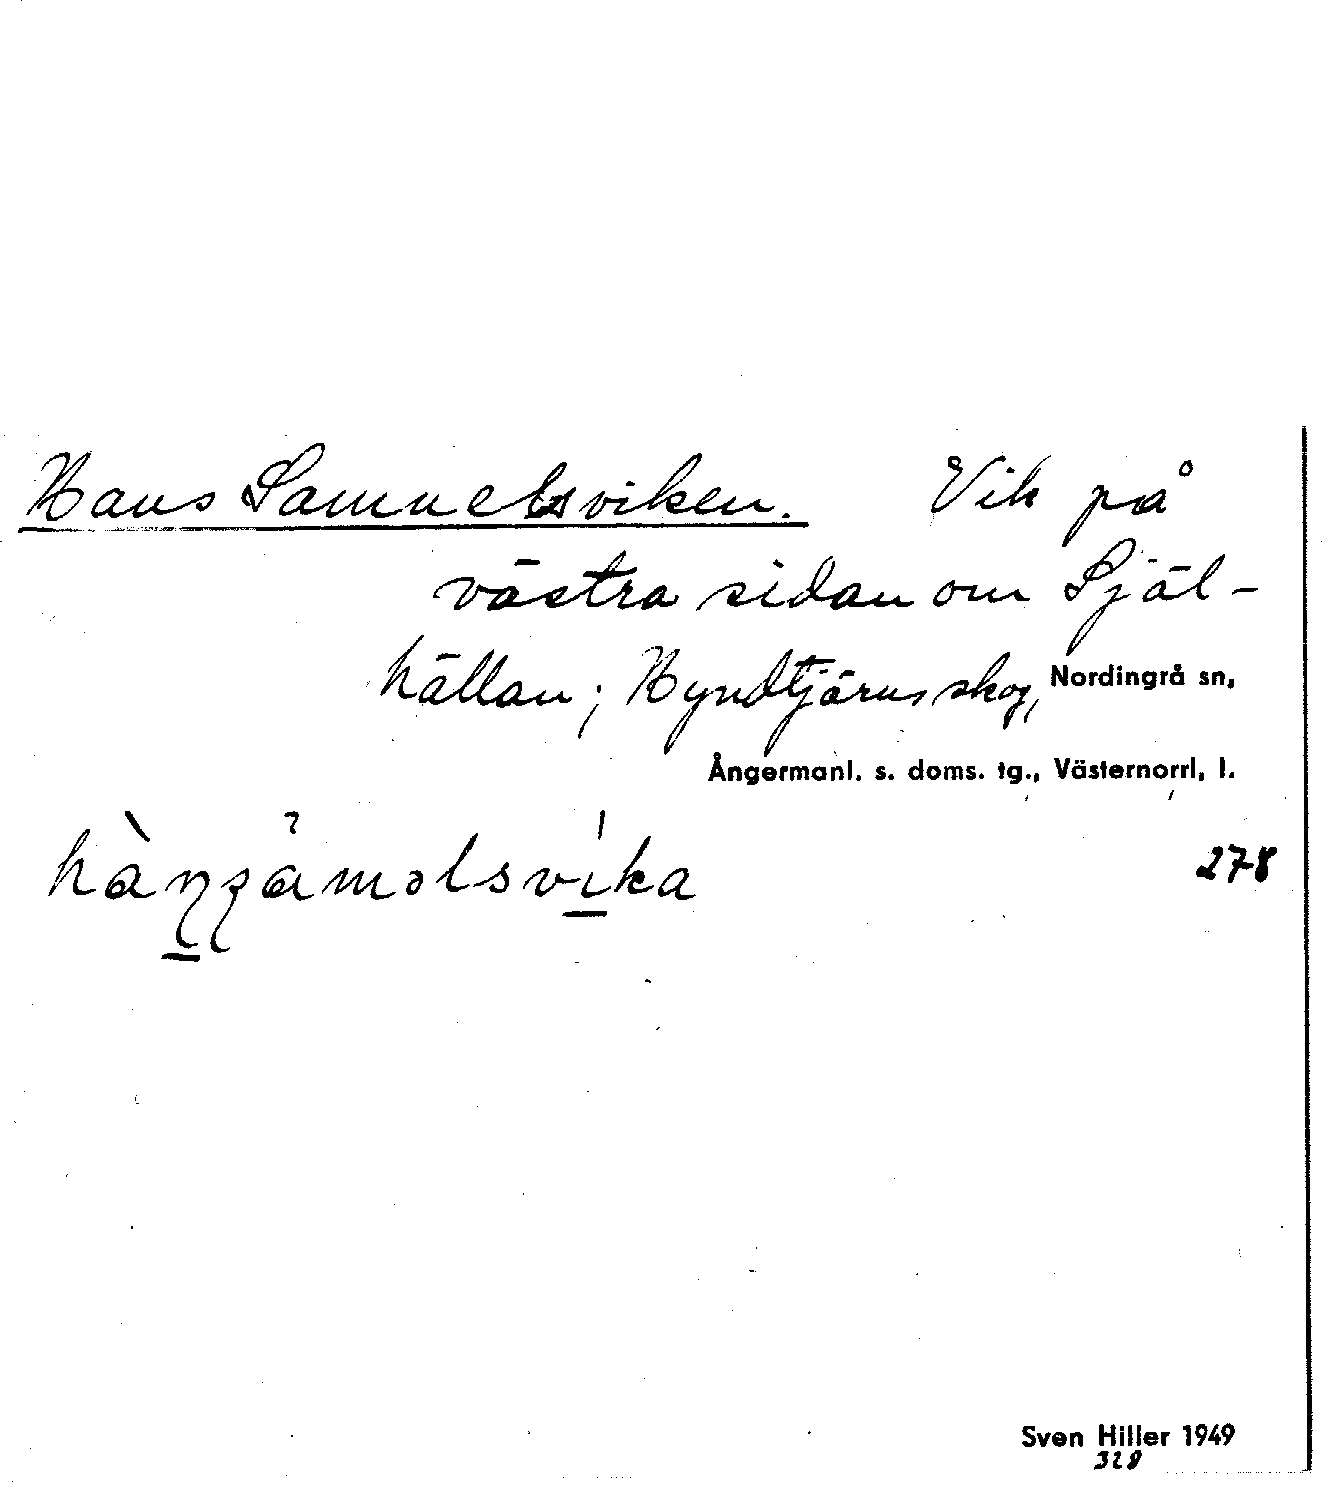 Hans Samuelsviken. Vik på
västra sidan om Själ-
hällan; Hyndtjärns skog, Nordingrå sn,
Ångermanl. s. doms. tg., Västernorrl. l.
278
Sven Hiller 1949
328